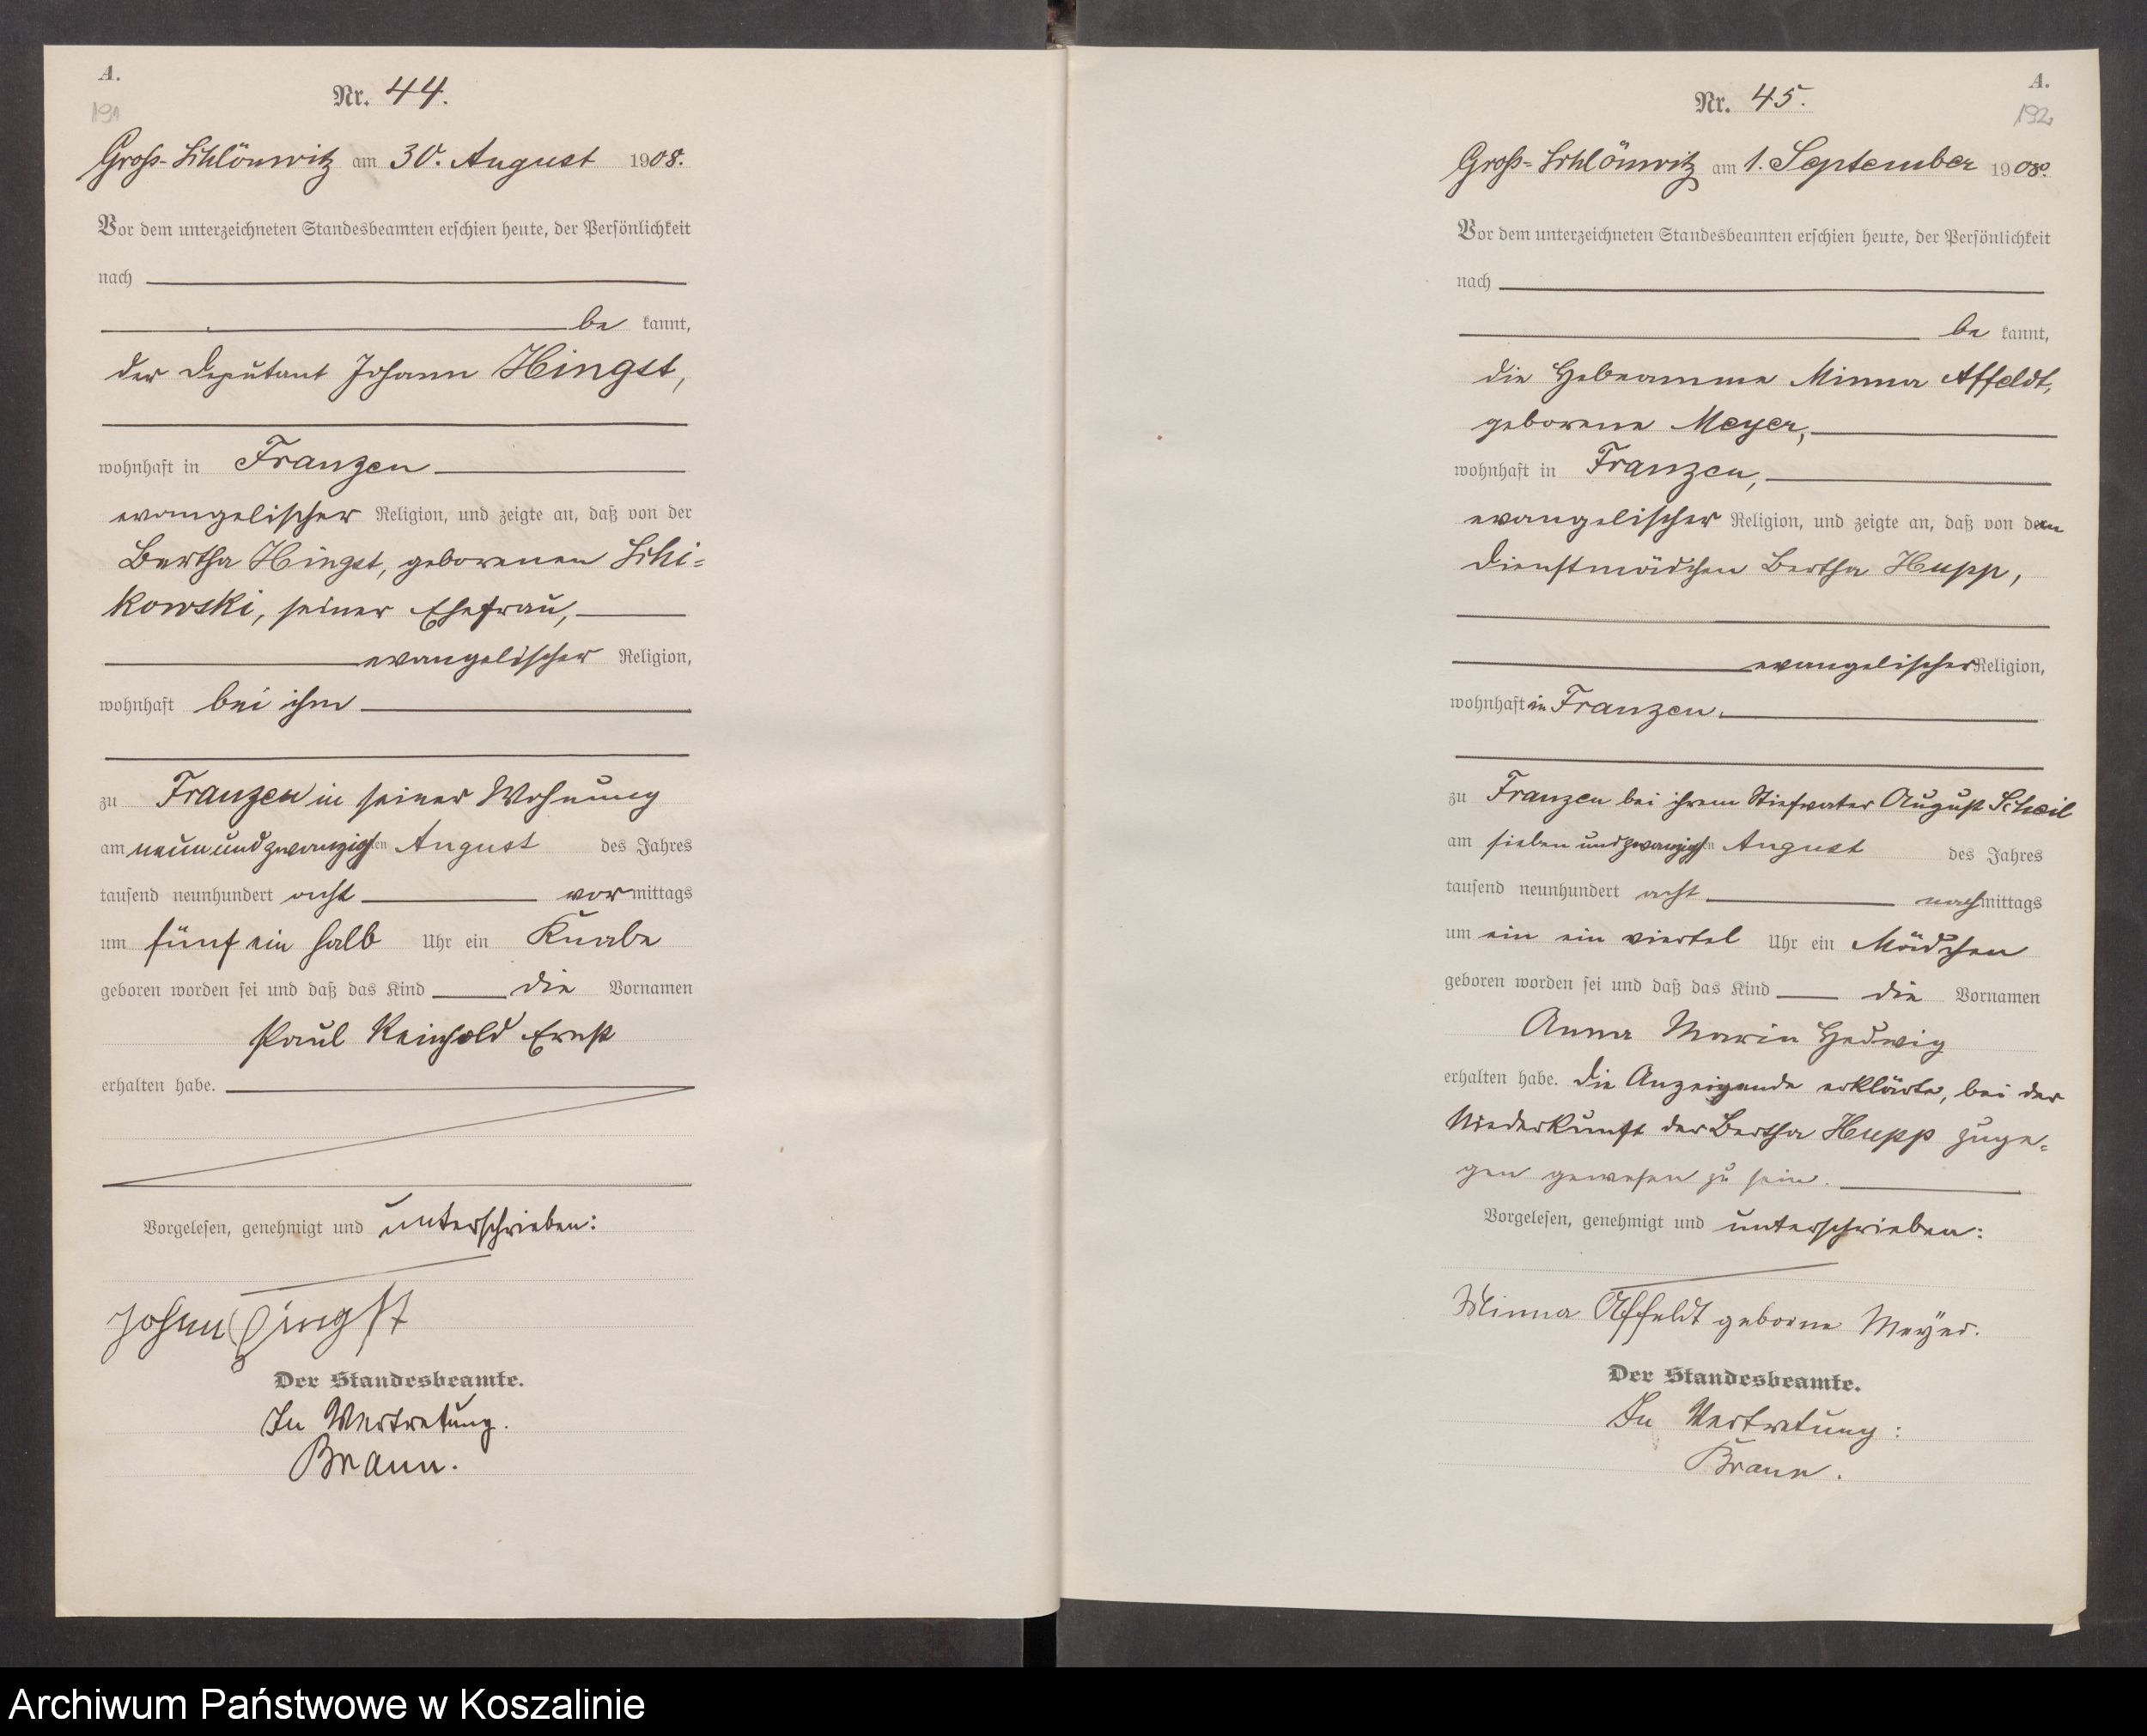 A.
191
Nr. 44.
Groß-Schlönwitz am 30. August 1908.
Vor dem unterzeichneten Standesbeamten erschien heute, der Persönlichkeit
nach
be kannt,
der Deputant Johann Hingst,
wohnhaft in Franzen
evangelischer Religion, und zeigte an, daß von der
Bertha Hingst, geborenen Schi-
kowski, seiner Ehefrau,
evangelischer Religion,
wohnhaft bei ihm
zu Franzen in seiner Wohnung
am neunundzwanzigsten August des Jahres
tausend neunhundert acht vormittags
um fünf ein halb Uhr ein Knabe
geboren worden sei und daß das Kind die Vornamen
Paul Reinhold Ernst
erhalten habe.
Vorgelesen, genehmigt und unterschrieben:
Johann Hingst
Der Standesbeamte.
In Vertretung.
Braun.
A.
192
Nr. 45.
Groß-Schlönwitz am 1. September 1908.
Vor dem unterzeichneten Standesbeamten erschien heute, der Persönlichkeit
nach
be kannt,
die Hebeamme Minna Affeldt,
geborene Meyer,
wohnhaft in Franzen,
evangelischer Religion, und zeigte an, daß von dem
Dienstmädchen Bertha Hupp,
evangelischer Religion,
wohnhaft in Franzen.
zu Franzen bei ihrem Stiefvater August Scheil
am siebenundzwanzigsten August des Jahres
tausend neunhundert acht nachmittags
um ein ein viertel Uhr ein Mädchen
geboren worden sei und daß das Kind die Vornamen
Anna Marie Hedwig
erhalten habe. Die Anzeigende erklärte, bei der
Niederkunft der Bertha Hupp zuge-
gen gewesen zu sein.
Vorgelesen, genehmigt und unterschrieben:
Minna Affeldt geborne Meyer.
Der Standesbeamte.
In Vertretung:
Braun.
Archiwum Państwowe w Koszalinie